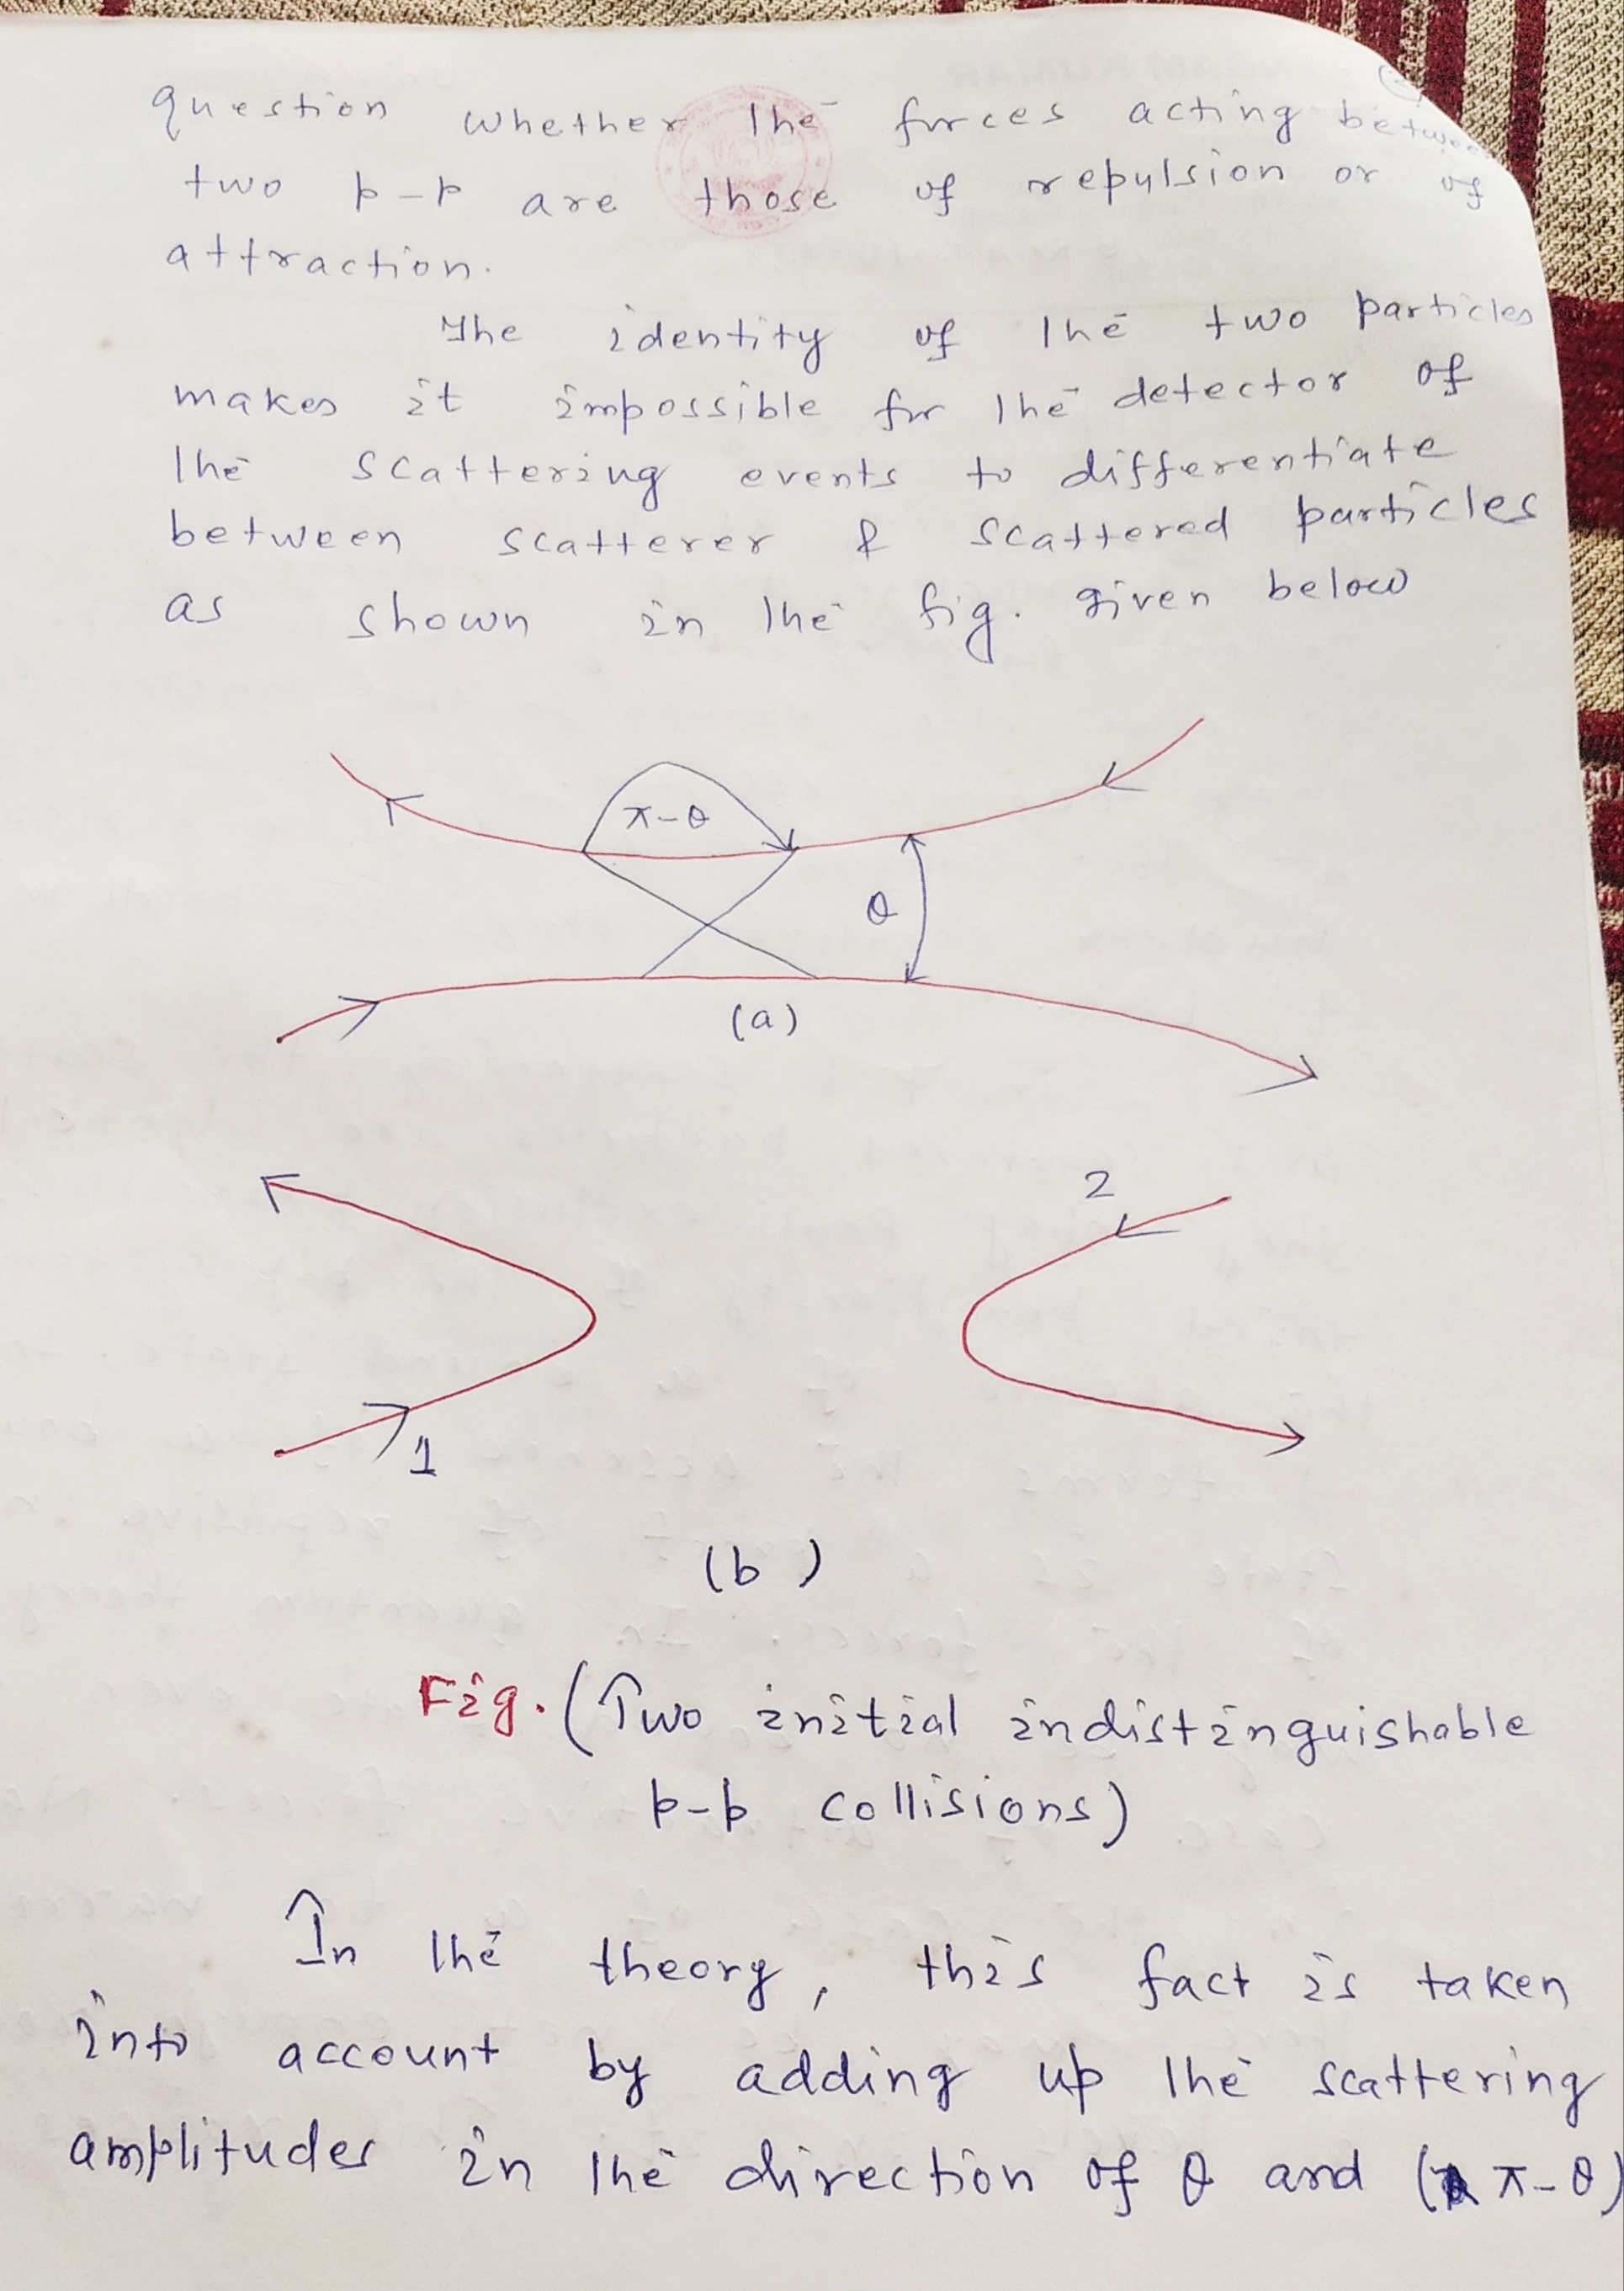 question whether the forces acting between
two p-p are those of repulsion or of
attraction.
The identity of the two particles
makes it impossible for the detector of
the scattering events to differentiate
between scatterer & scattered particles
as shown in the fig. given below
π-θ
θ
(a)
2
1
(b)
Fig. (Two initial indistinguishable
p-p collisions)
In the theory, this fact is taken
into account by adding up the scattering
amplitudes in the direction of θ and (π-θ)